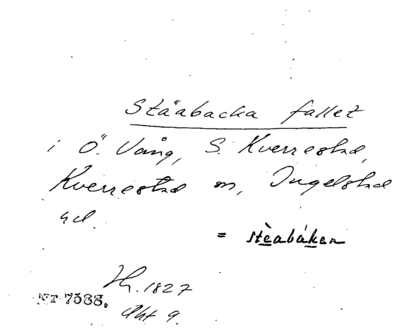 Stäabacka fallet
i Ö. Vång, S. Kverrestad,
Kverrestad sn, Ingelstad
hd.
= stèabákan
Hr. 1827
NT 7588.
Akt 9.